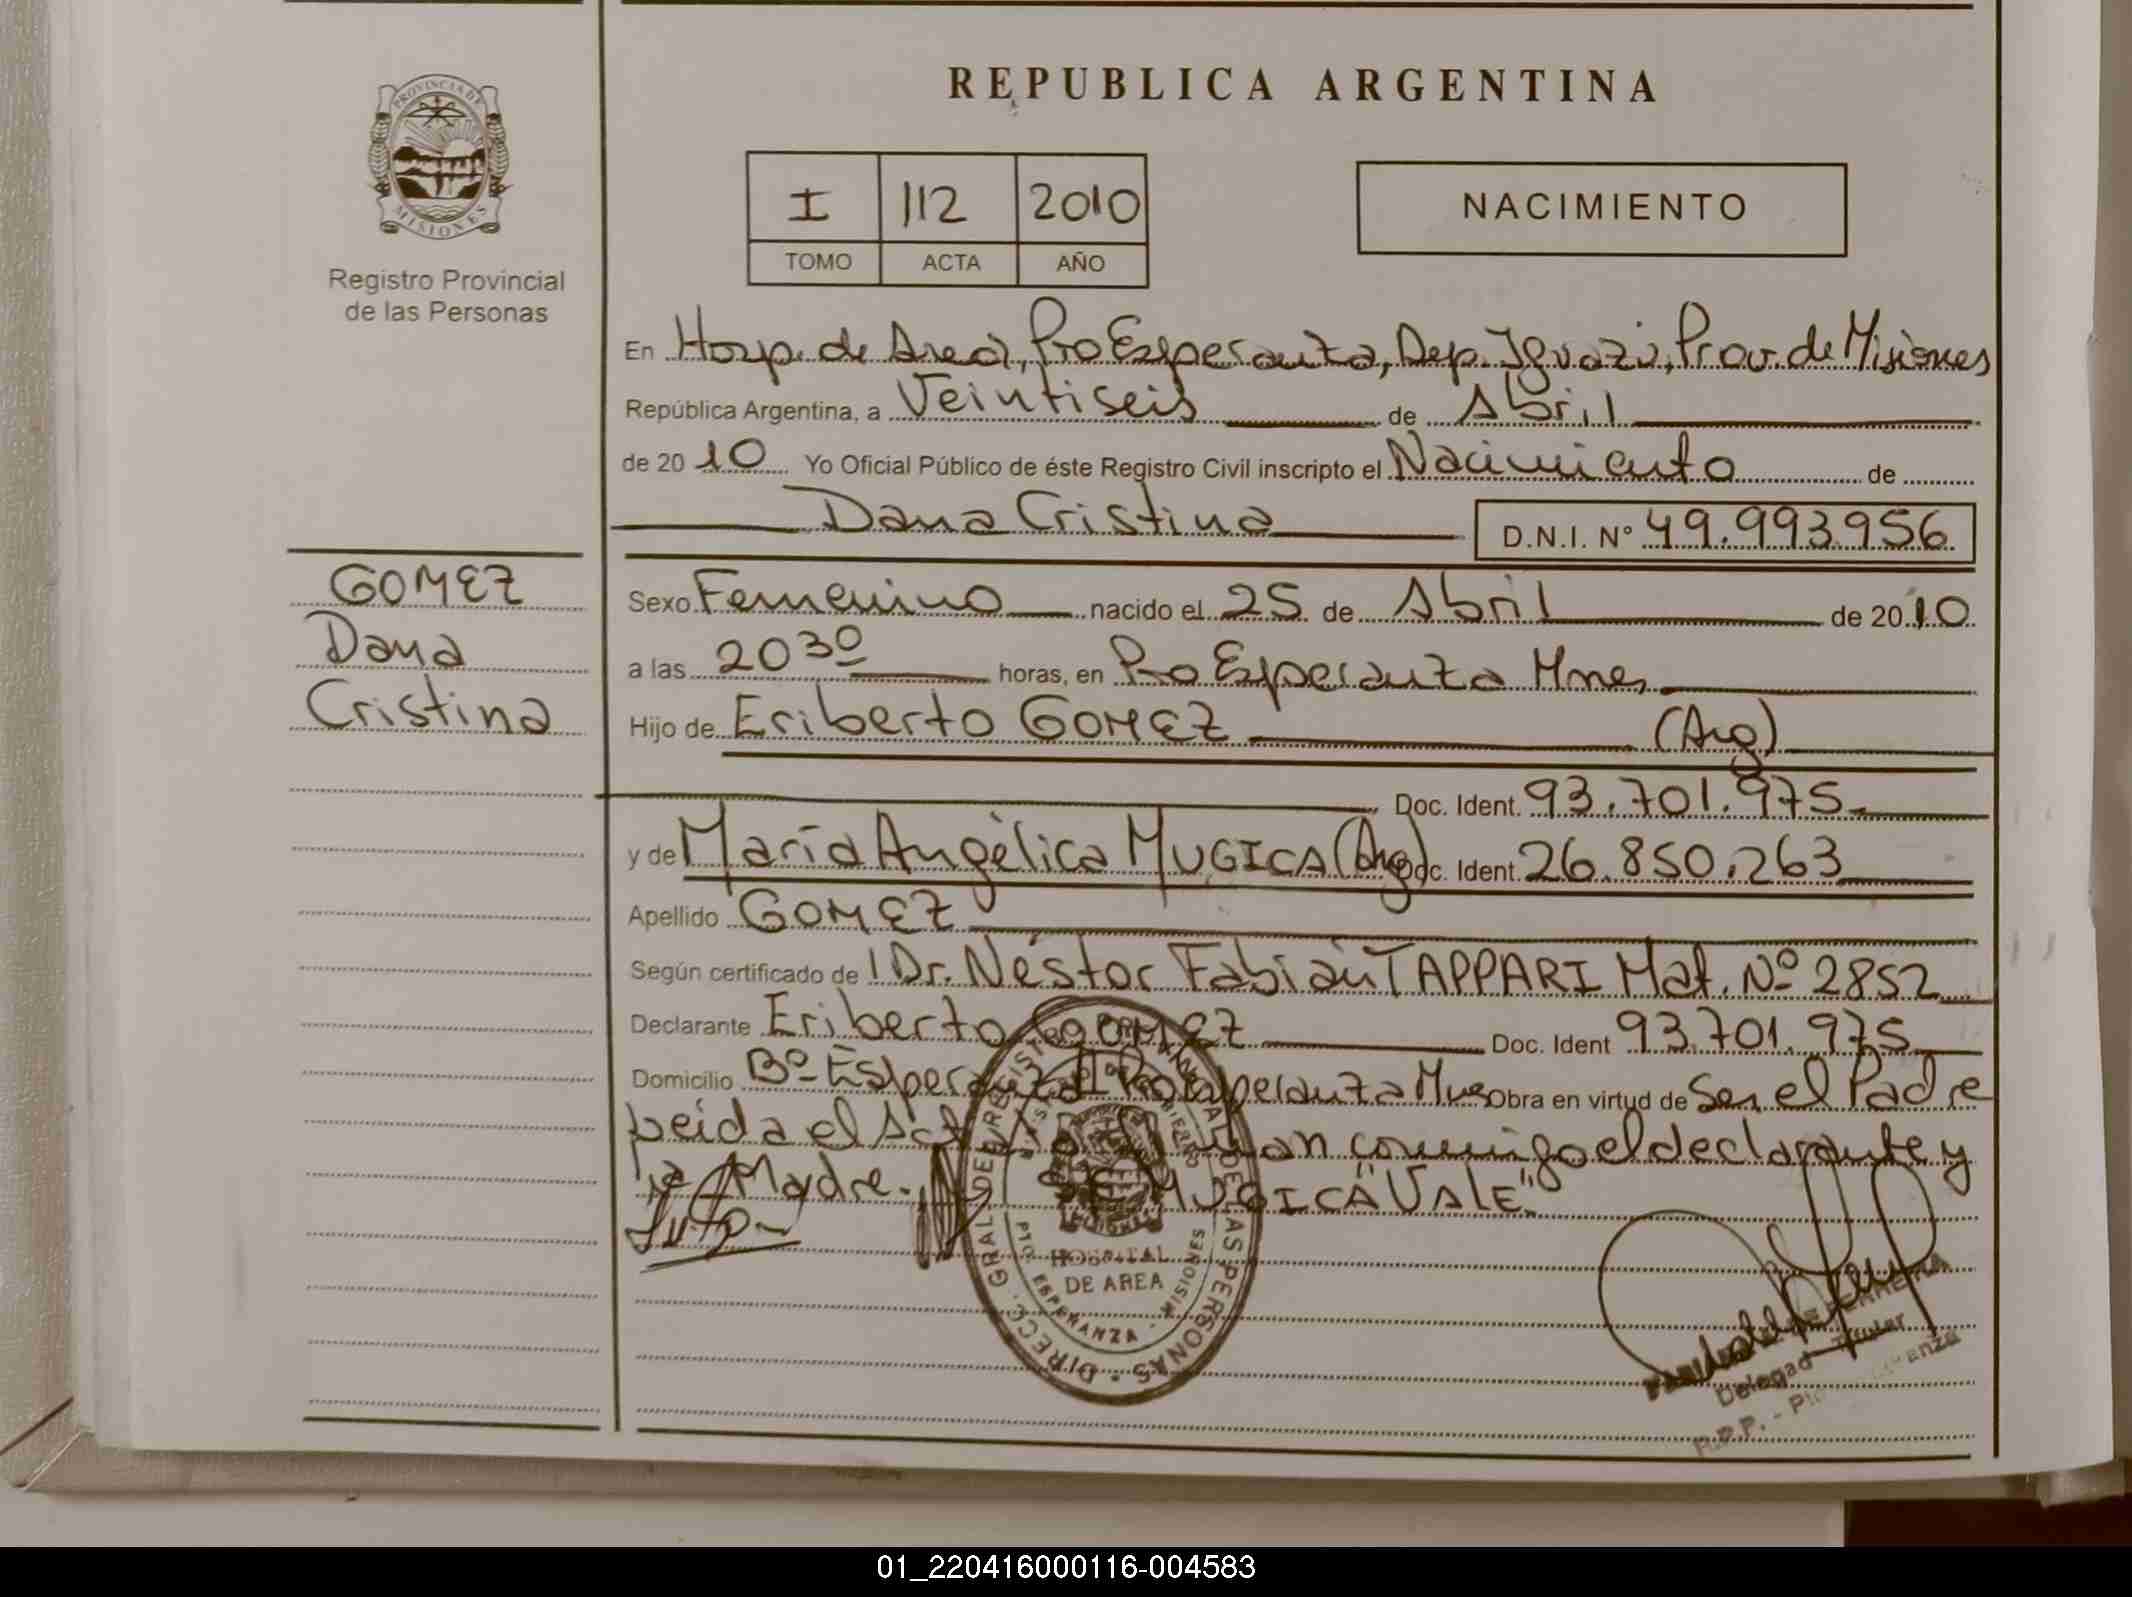 PROVINCIA DE
MISIONES
Registro Provincial
de las Personas
REPUBLICA ARGENTINA
I 112 2010
TOMO ACTA AÑO
NACIMIENTO
En Hosp. de Area, Pto Esperanza, Dep. Iguazú, Prov. de Misiones
República Argentina, a Veintiseis de Abril
de 2010 Yo Oficial Público de éste Registro Civil inscripto el Nacimiento de
Dana Cristina D.N.I. Nº 49.993.956
GOMEZ
Dana
Cristina
Sexo Femenino nacido el 25 de Abril de 2010
a las 20 30 horas, en Pto Esperanza Mnes
Hijo de Eriberto GOMEZ (Arg)
Doc. Ident. 93.701.975
y de María Angélica MUGICA (Arg) Doc. Ident. 26.850.263
Apellido GOMEZ
Según certificado de Dr. Néstor Fabián TAPPARI Mat. Nº 2852
Declarante Eriberto GOMEZ Doc. Ident 93.701.975
Domicilio Bº Esperanza Pto Esperanza Mnes Obra en virtud de Ser el Padre
Leida el Acta conmigo el declarante y
la Madre. MUGICA "VALE".
DIRECC. GRAL. DEL REGISTRO PROVINCIAL DE LAS PERSONAS
HOSPITAL
DE AREA
PTO. ESPERANZA - MISIONES
Titular
R.P.P. -
01_220416000116-004583